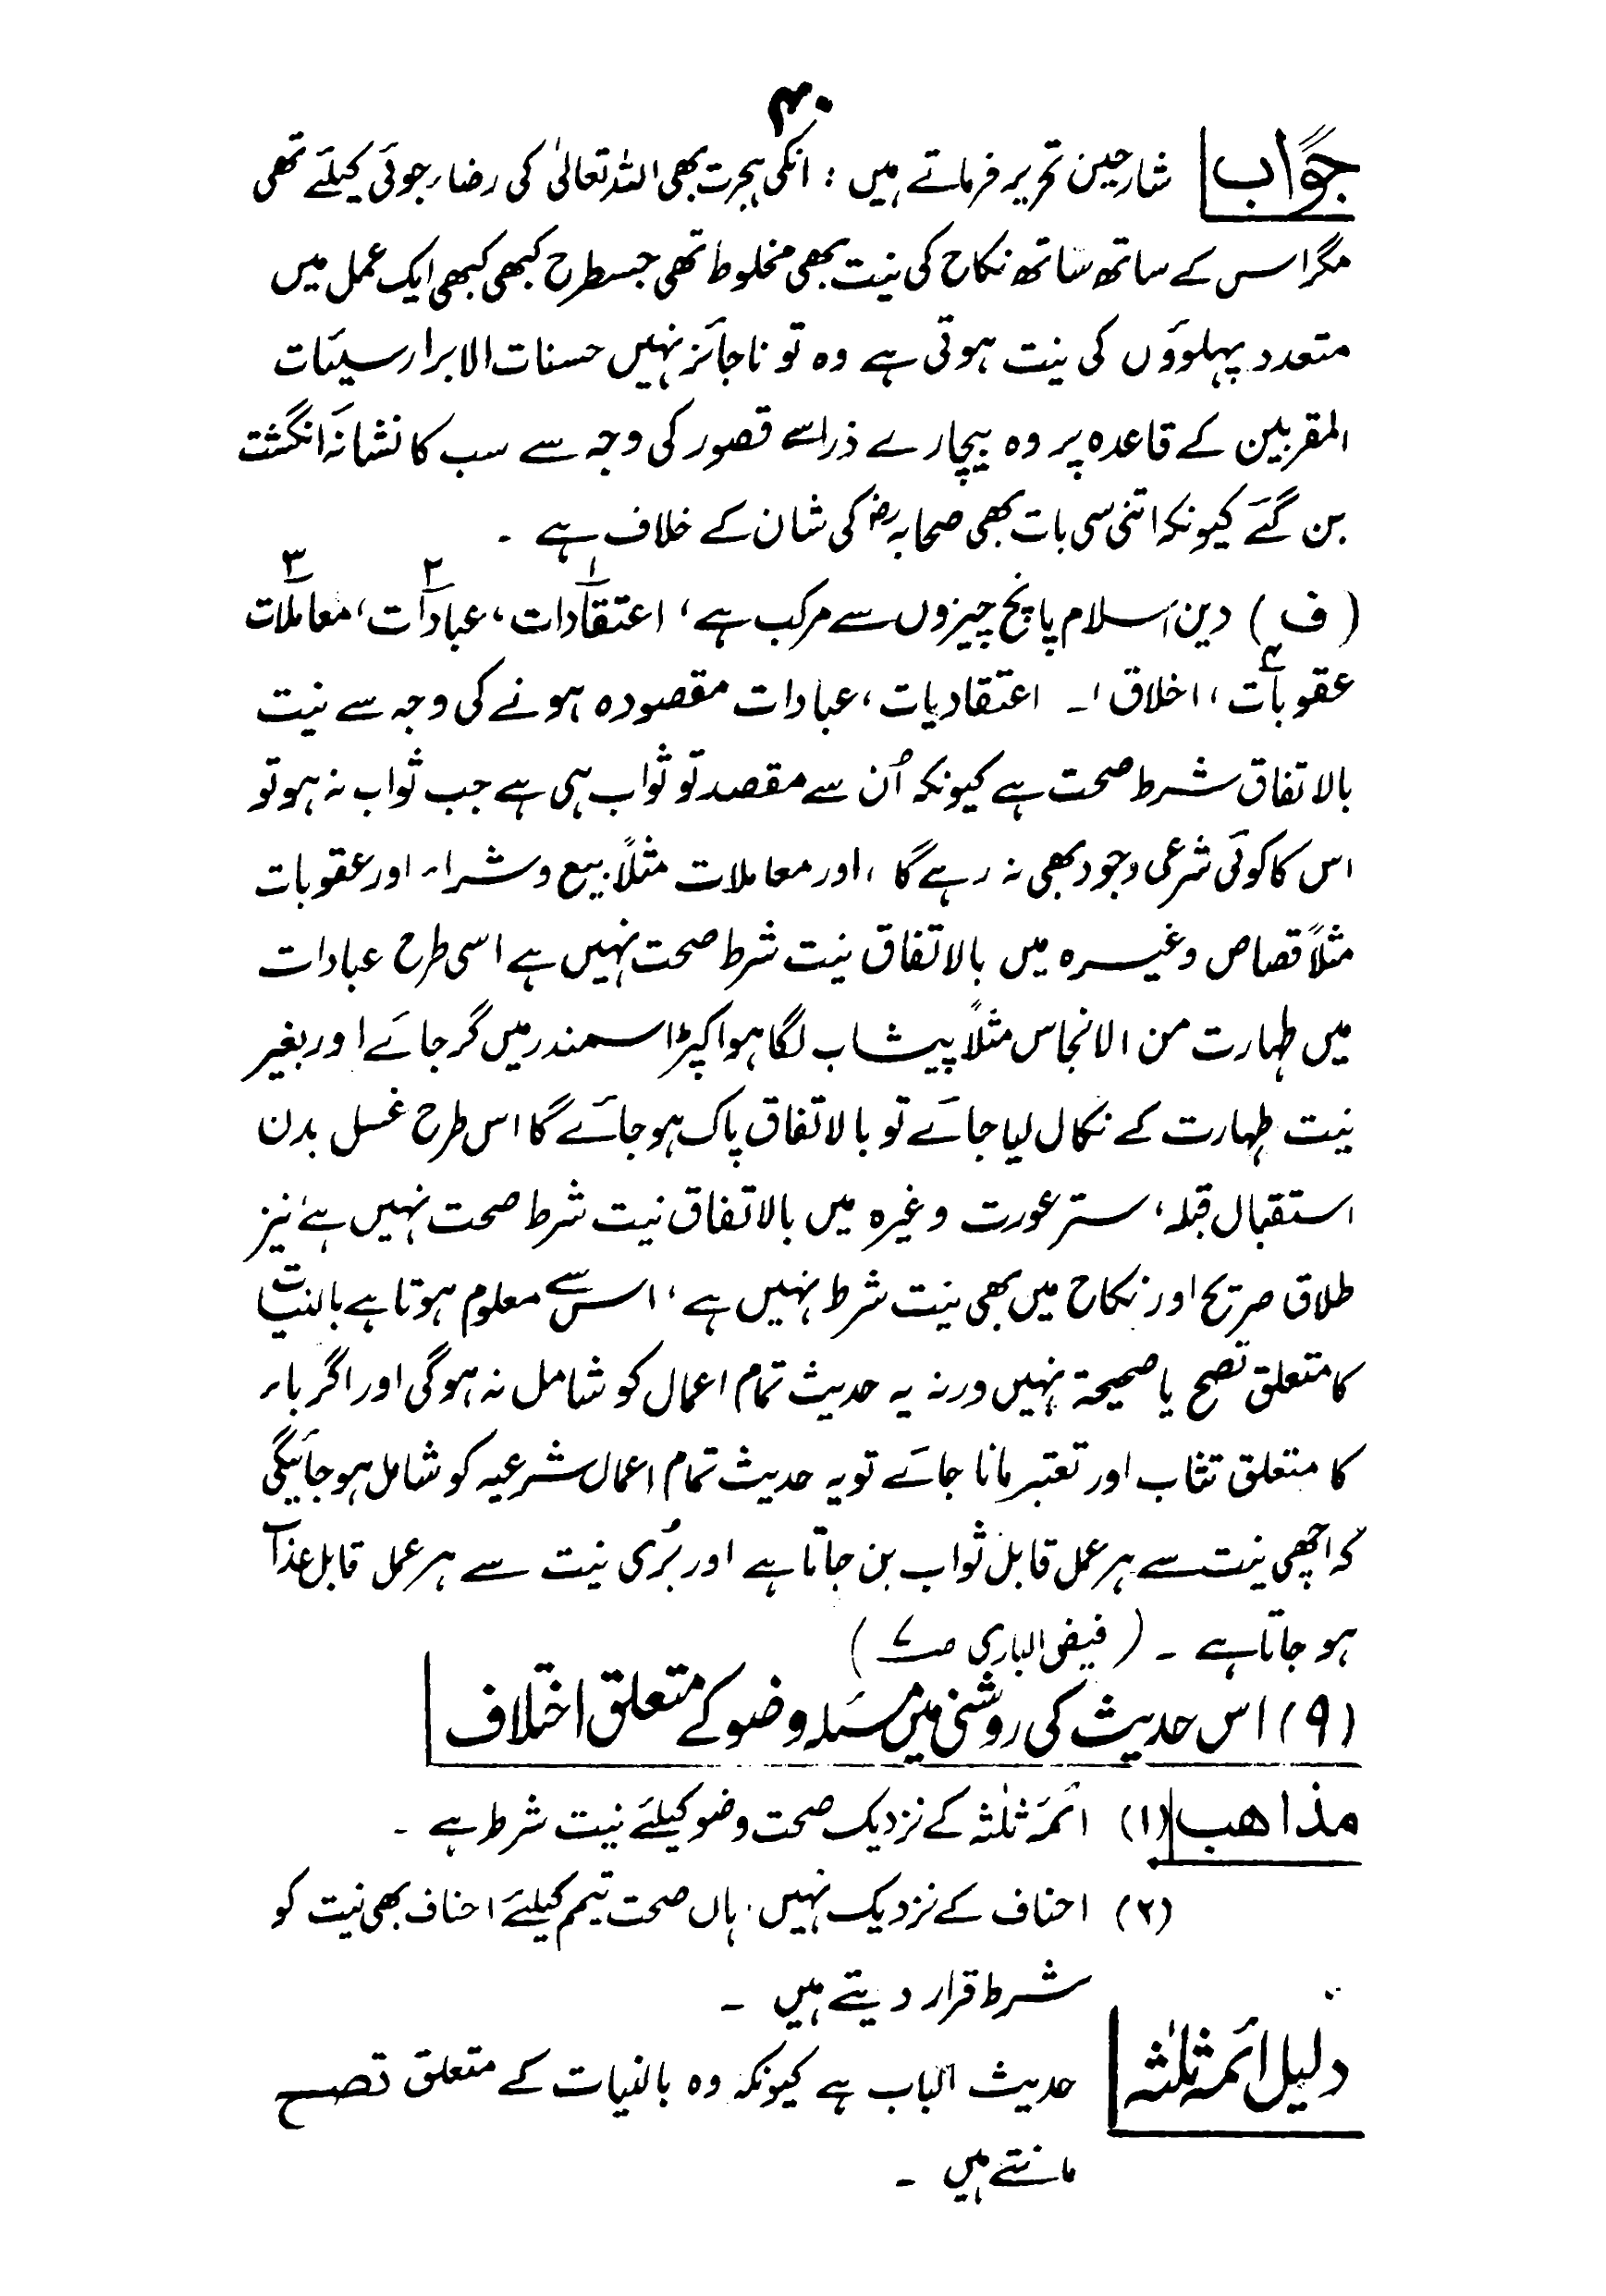 ۴۰
جواب شارحین تحریر فرماتے ہیں : انکی ہجرت بھی اللہ تعالیٰ کی رضاء جوئی کیلئے تھی
مگر اس کے ساتھ ساتھ نکاح کی نیت بھی مخلوط تھی جسطرح کبھی کبھی ایک عمل میں
متعدد پہلوؤں کی نیت ہوتی ہے وہ تو ناجائز نہیں حسنات الابرار سیئات
المقربین کے قاعدہ پر وہ بیچارے ذراسے قصور کی وجہ سے سب کا نشانۂ انگشت
بن گئے کیونکہ اتنی سی بات بھی صحابہ رض کی شان کے خلاف ہے ۔
(ف) دین اسلام پانچ چیزوں سے مرکب ہے ، ۱ اعتقادات ، ۲ عبادات ، ۳ معاملات
۴ عقوبات ، اخلاق ۱۔ اعتقادیات ، عبادات مقصودہ ہونے کی وجہ سے نیت
بالاتفاق شرط صحت ہے کیونکہ اُن سے مقصد تو ثواب ہی ہے جب ثواب نہ ہو تو
اس کا کوئی شرعی وجود بھی نہ رہے گا ، اور معاملات مثلاً بیع و شراء اور عقوبات
مثلاً قصاص وغیرہ میں بالاتفاق نیت شرط صحت نہیں ہے اسی طرح عبادات
میں طہارت من الانجاس مثلاً پیشاب لگا ہوا کپڑا سمندر میں گر جائے اور بغیر
نیت طہارت کے نکال لیا جائے تو بالاتفاق پاک ہو جائے گا اس طرح غسل بدن
استقبال قبلہ ، ستر عورت وغیرہ میں بالاتفاق نیت شرط صحت نہیں ہے ، نیز
طلاق صریح اور نکاح میں بھی نیت شرط نہیں ہے ، اس سے معلوم ہوتا ہے بالنیات
کا متعلق تصح یا صحیحۃ نہیں ورنہ یہ حدیث تمام اعمال کو شامل نہ ہوگی اور اگر باء
کا متعلق تثاب اور تعتبر مانا جائے تو یہ حدیث تمام اعمال شرعیہ کو شامل ہو جائیگی
کہ اچھی نیت سے ہر عمل قابل ثواب بن جاتا ہے اور بُری نیت سے ہر عمل قابل عذاب
ہو جاتا ہے ۔ ( فیض الباری صـ۷ )
(۹) اس حدیث کی روشنی میں مسئلہ وضو کے متعلق اختلاف
مذاھب (۱) ائمۂ ثلٰثہ کے نزدیک صحت وضو کیلئے نیت شرط ہے ۔
(۲) احناف کے نزدیک نہیں ۔ ہاں صحت تیمم کیلئے احناف بھی نیت کو
شرط قرار دیتے ہیں ۔
دلیل ائمہ ثلٰثہ حدیث الباب ہے کیونکہ وہ بالنیات کے متعلق تصح
مانتے ہیں ۔